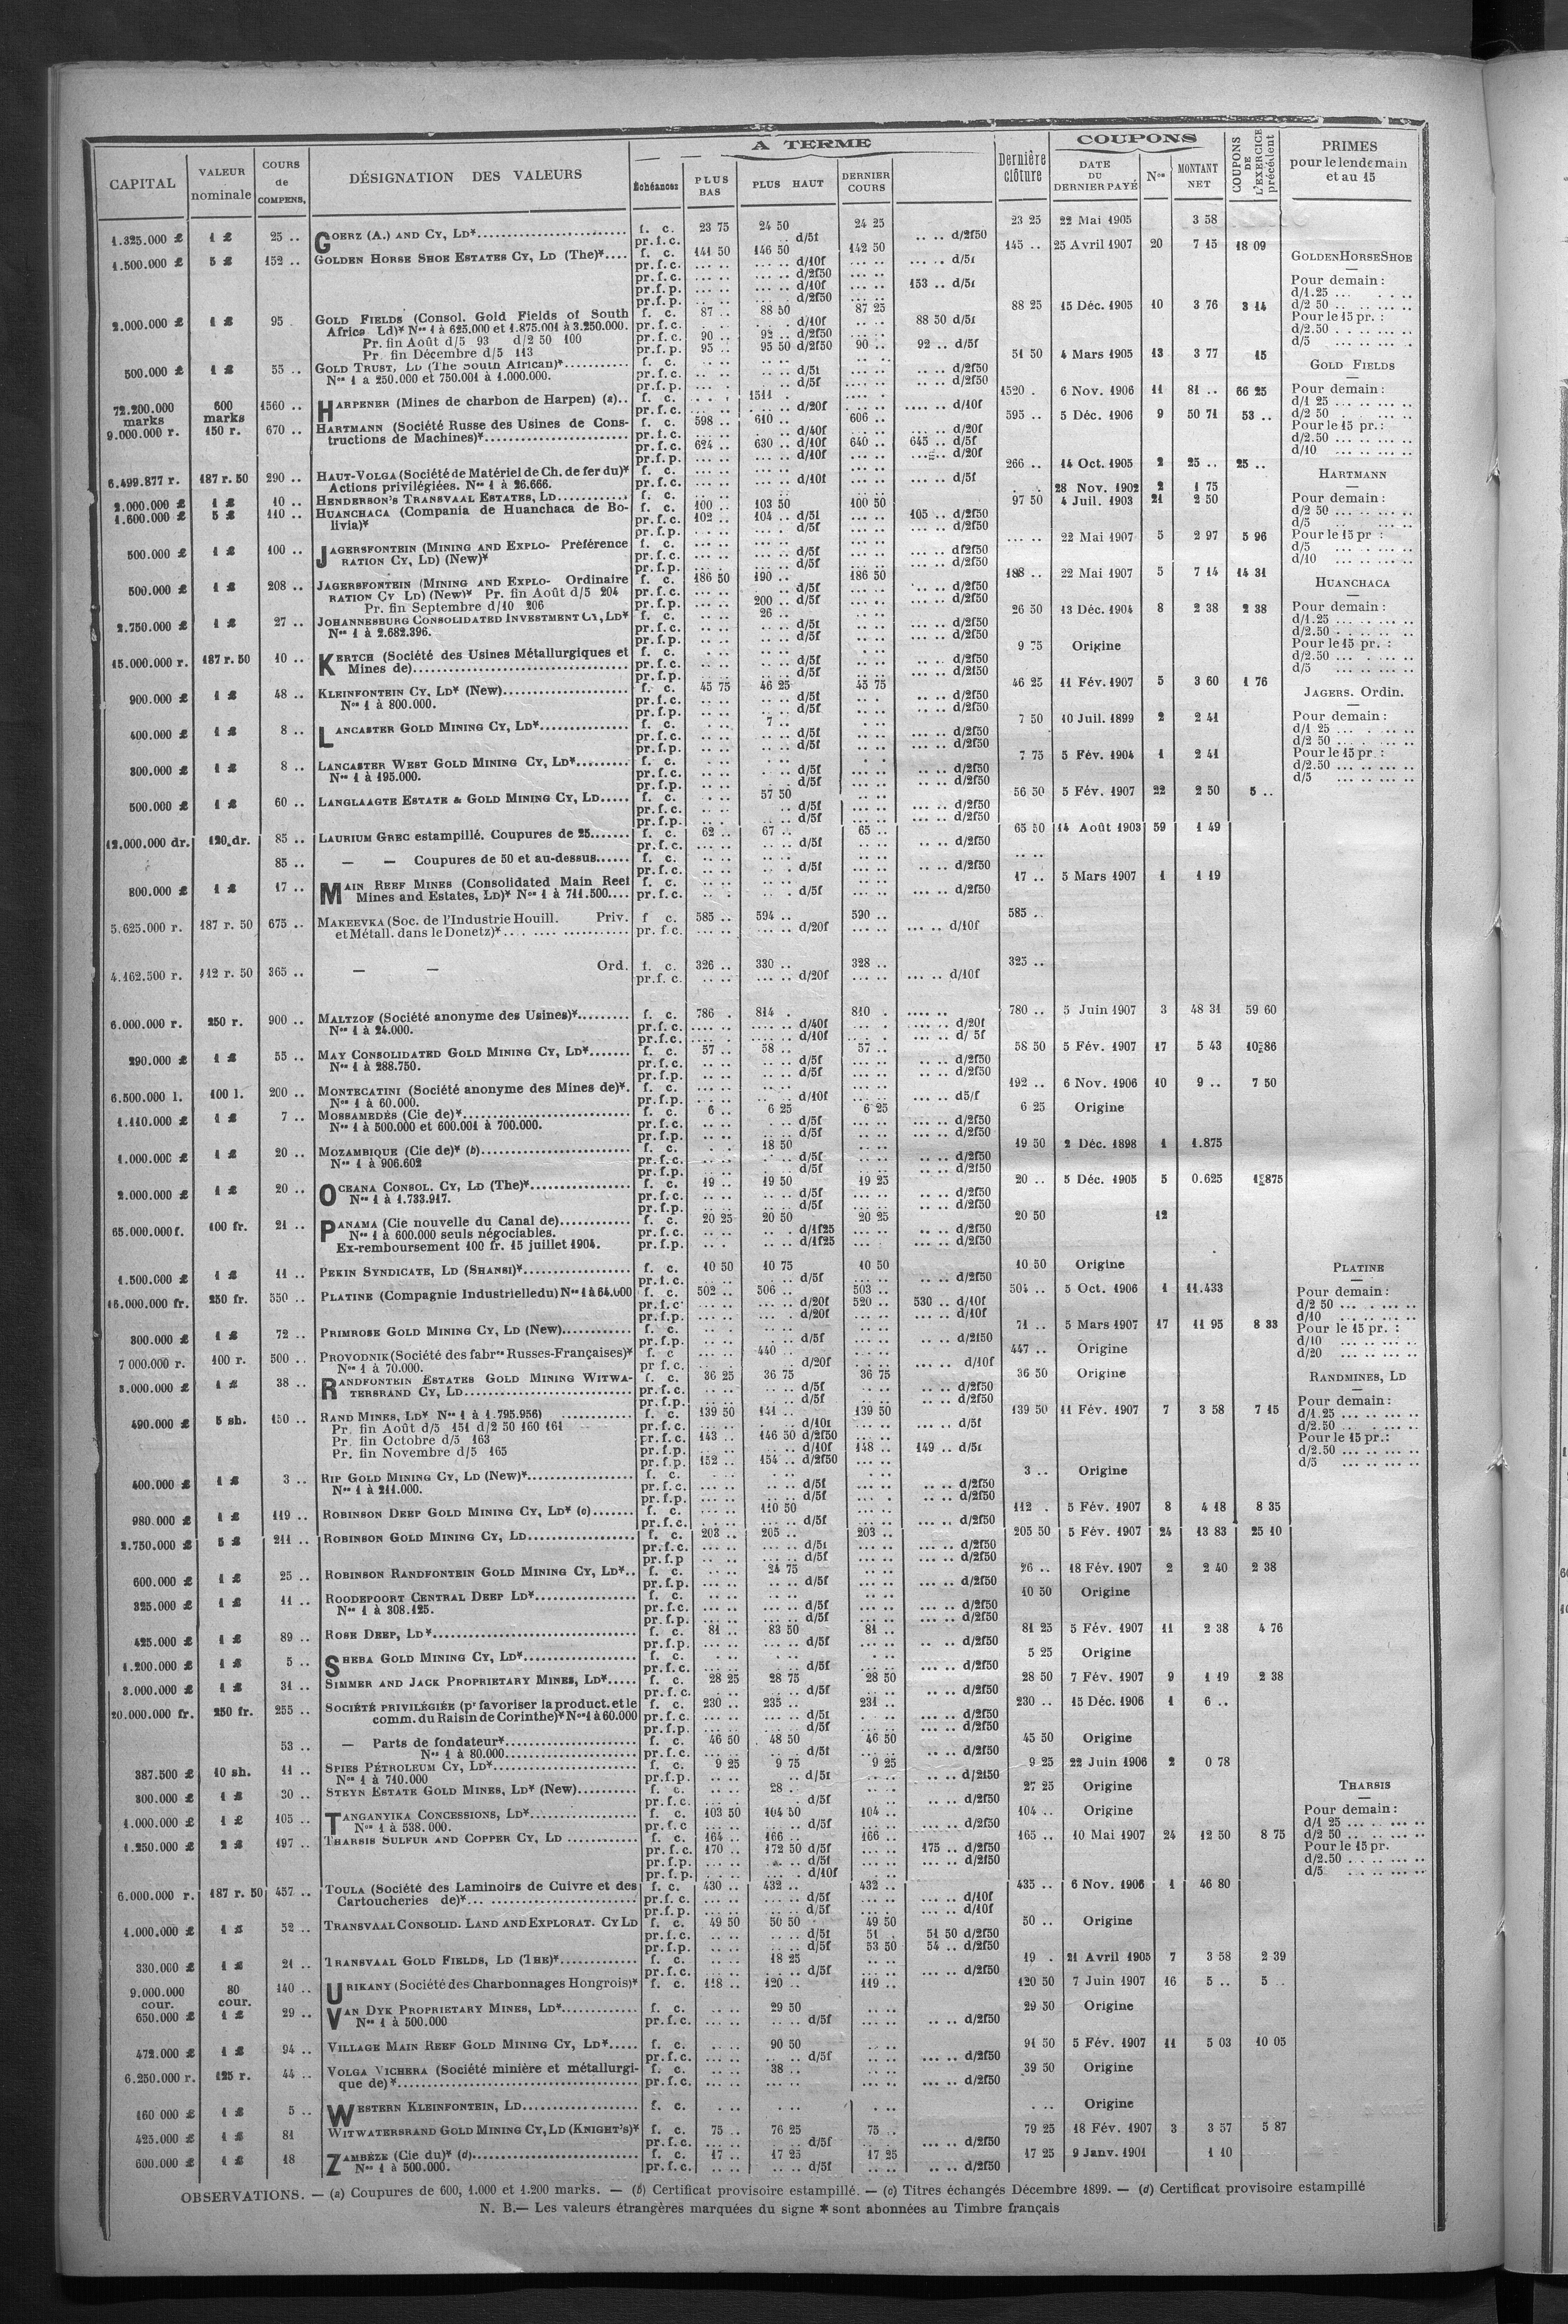 A TERME
COUPONS
CAPITAL | VALEUR nominale | COURS de COMPENS. | DÉSIGNATION DES VALEURS | Échéances | PLUS BAS | PLUS HAUT | DERNIER COURS | Dernière clôture | DATE DU DERNIER PAYÉ | Nos | MONTANT NET | COUPONS DE L'EXERCICE précédent | PRIMES pour le lendemain et au 15
1.325.000 £ | 1 £ | 25 .. | GOERZ (A.) AND CY, LD* | f. c. | 23 75 | 24 50 | 24 25 | 23 25 | 22 Mai 1905 | 3 58
1.500.000 £ | 5 £ | 152 .. | GOLDEN HORSE SHOE ESTATES CY, LD (The)* | f. c. | 141 50 | 146 50 | 142 50 | 145 .. | 25 Avril 1907 | 20 | 7 15 | 18 09
153 .. d/5f
2.000.000 £ | 1 £ | 95 | GOLD FIELDS (Consol. Gold Fields of South | f. c. | 87 .. | 88 50 | 87 25 | 88 25 | 15 Déc. 1905 | 10 | 3 76 | 3 14
Africa Ld)* Nos 1 à 625.000 et 1.875.001 à 3.250.000. | pr.f.c. | d/10f | 88 50 d/5f
Pr. fin Août d/5 93 d/2 50 100 | pr.f.c. | 90 .. | 92 .. d/2f50
Pr. fin Décembre d/5 113 | pr.f.p. | 95 .. | 95 50 d/2f50 | 90 .. | 92 .. d/5f
500.000 £ | 1 £ | 55 .. | GOLD TRUST, LD (The South African)* | f. c. | 51 50 | 4 Mars 1905 | 13 | 3 77 | 15
Nos 1 à 250.000 et 750.001 à 1.000.000.
72.200.000 marks | 600 marks | 1560 .. | HARPENER (Mines de charbon de Harpen) (a).. | f. c. | 1511 . | 1520 . | 6 Nov. 1906 | 11 | 81 .. | 66 25
9.000.000 r. | 150 r. | 670 .. | HARTMANN (Société Russe des Usines de Cons- | f. c. | 598 .. | 610 .. | 606 .. | 595 .. | 5 Déc. 1906 | 9 | 50 71 | 53 ..
tructions de Machines)* | pr.f.c. | 624 .. | 630 .. d/10f | 640 .. | 645 .. d/5f
6.499.877 r. | 187 r. 50 | 290 .. | HAUT-VOLGA (Société de Matériel de Ch. de fer du)* | f. c. | 266 .. | 14 Oct. 1905 | 2 | 25 .. | 25 ..
Actions privilégiées. Nos 1 à 26.666. | pr.f.c. | d/10f | d/5f
2.000.000 £ | 1 £ | 10 .. | HENDERSON'S TRANSVAAL ESTATES, LD | f. c. | 28 Nov. 1902 | 2 | 1 75
1.600.000 £ | 5 £ | 110 .. | HUANCHACA (Compania de Huanchaca de Bo- | f. c. | 100 .. | 103 50 | 100 50 | 97 50 | 4 Juil. 1903 | 21 | 2 50
livia)* | pr.f.c. | 102 .. | 104 .. d/5f | 105 .. d/2f50
500.000 £ | 1 £ | 100 .. | JAGERSFONTEIN (MINING AND EXPLO- Préférence | f. c. | 22 Mai 1907 | 5 | 2 97 | 5 96
RATION CY, LD) (New)* | pr.f.c. | d/5f | d/2f50
500.000 £ | 1 £ | 208 .. | JAGERSFONTEIN (MINING AND EXPLO- Ordinaire | f. c. | 186 50 | 190 .. | 186 50 | 188 .. | 22 Mai 1907 | 5 | 7 14 | 14 31
RATION CY LD) (New)* Pr. fin Août d/5 204
Pr. fin Septembre d/10 206 | pr.f.p. | 200 .. d/5f | d/2f50
2.750.000 £ | 1 £ | 27 .. | JOHANNESBURG CONSOLIDATED INVESTMENT CY, LD* | f. c. | 26 .. | 26 50 | 13 Déc. 1904 | 8 | 2 38 | 2 38
Nos 1 à 2.682.396.
15.000.000 r. | 187 r. 50 | 10 .. | KERTCH (Société des Usines Métallurgiques et | f. c. | 9 75 | Origine
Mines de) | pr.f.c. | d/5f | d/2f50
900.000 £ | 1 £ | 48 .. | KLEINFONTEIN CY, LD* (New) | f. c. | 45 75 | 46 25 | 45 75 | 46 25 | 11 Fév. 1907 | 5 | 3 60 | 1 76
Nos 1 à 800.000.
400.000 £ | 1 £ | 8 .. | LANCASTER GOLD MINING CY, LD* | f. c. | 7 .. | 7 50 | 10 Juil. 1899 | 2 | 2 41
300.000 £ | 1 £ | 8 .. | LANCASTER WEST GOLD MINING CY, LD* | f. c. | 7 75 | 5 Fév. 1904 | 1 | 2 41
Nos 1 à 195.000.
500.000 £ | 1 £ | 60 .. | LANGLAAGTE ESTATE & GOLD MINING CY, LD | f. c. | 57 50 | 56 50 | 5 Fév. 1907 | 22 | 2 50 | 5 ..
12.000.000 dr. | 120 dr. | 85 .. | LAURIUM GREC estampillé. Coupures de 25 | f. c. | 62 .. | 67 .. | 65 .. | 65 50 | 14 Août 1903 | 59 | 1 49
85 .. | — — Coupures de 50 et au-dessus | f. c.
800.000 £ | 1 £ | 17 .. | MAIN REEF MINES (Consolidated Main Reef | f. c. | 17 .. | 5 Mars 1907 | 1 | 1 19
Mines and Estates, LD)* Nos 1 à 711.500 | pr.f.c. | d/5f | d/2f50
5.625.000 r. | 187 r. 50 | 675 .. | MAKEEVKA (Soc. de l'Industrie Houill. Priv. | f. c. | 585 .. | 594 .. | 590 .. | 585 ..
et Métall. dans le Donetz)* | pr.f.c. | d/20f | d/10f
4.162.500 r. | 112 r. 50 | 365 .. | — — Ord. | f. c. | 326 .. | 330 .. | 328 .. | 325 ..
pr.f.c. | d/20f | d/10f
6.000.000 r. | 250 r. | 900 .. | MALTZOF (Société anonyme des Usines)* | f. c. | 786 . | 814 . | 810 . | 780 .. | 5 Juin 1907 | 3 | 48 31 | 59 60
Nos 1 à 24.000. | pr.f.c. | d/40f | d/20f
pr.f.c. | d/10f | d/ 5f
290.000 £ | 1 £ | 55 .. | MAY CONSOLIDATED GOLD MINING CY, LD* | f. c. | 57 .. | 58 .. | 57 .. | 58 50 | 5 Fév. 1907 | 17 | 5 43 | 10 86
Nos 1 à 288.750.
6.500.000 l. | 100 l. | 200 .. | MONTECATINI (Société anonyme des Mines de)*. | f. c. | 192 .. | 6 Nov. 1906 | 10 | 9 .. | 7 50
Nos 1 à 60.000. | pr.f.p. | d/10f | d5/f
1.110.000 £ | 1 £ | 7 .. | MOSSAMEDÈS (Cie de)* | f. c. | 6 .. | 6 25 | 6 25 | 6 25 | Origine
Nos 1 à 500.000 et 600.001 à 700.000.
1.000.000 £ | 1 £ | 20 .. | MOZAMBIQUE (Cie de)* (b) | f. c. | 18 50 | 19 50 | 2 Déc. 1898 | 1 | 1.875
Nos 1 à 906.602
2.000.000 £ | 1 £ | 20 .. | OCEANA CONSOL. CY, LD (The)* | f. c. | 19 .. | 19 50 | 19 25 | 20 .. | 5 Déc. 1905 | 5 | 0.625 | 1 875
Nos 1 à 1.733.917.
65.000.000 f. | 100 fr. | 21 .. | PANAMA (Cie nouvelle du Canal de) | f. c. | 20 25 | 20 50 | 20 25 | 20 50 | 12
Nos 1 à 600.000 seuls négociables. | pr.f.c. | d/1f25 | d/2f50
Ex-remboursement 100 fr. 15 juillet 1904. | pr.f.p. | d/1f25 | d/2f50
1.500.000 £ | 1 £ | 11 .. | PEKIN SYNDICATE, LD (SHANSI)* | f. c. | 10 50 | 10 75 | 10 50 | 10 50 | Origine
16.000.000 fr. | 250 fr. | 550 .. | PLATINE (Compagnie Industrielle du) Nos 1 à 64.000 | f. c. | 502 .. | 506 .. | 503 .. | 504 .. | 5 Oct. 1906 | 1 | 11.433
pr.f.c. | d/20f | 520 .. | 530 .. d/10f
300.000 £ | 1 £ | 72 .. | PRIMROSE GOLD MINING CY, LD (New) | f. c. | 71 .. | 5 Mars 1907 | 17 | 11 95 | 8 33
7 000.000 r. | 100 r. | 500 .. | PROVODNIK (Société des fabres Russes-Françaises)* | f. c | 440 .. | 447 .. | Origine
Nos 1 à 70.000. | pr f.c. | d/20f | d/10f
3.000.000 £ | 1 £ | 38 .. | RANDFONTEIN ESTATES GOLD MINING WITWA- | f. c. | 36 25 | 36 75 | 36 75 | 36 50 | Origine
TERSRAND CY, LD | pr.f.c. | d/5f | d/2f50
490.000 £ | 5 sh. | 150 .. | RAND MINES, LD* Nos 1 à 1.795.956) | f. c. | 139 50 | 141 .. | 139 50 | 139 50 | 11 Fév. 1907 | 7 | 3 58 | 7 15
Pr. fin Août d/5 151 d/2 50 160 161 | pr.f.c. | d/10f | d/5f
Pr. fin Octobre d/5 163 | pr.f.c. | 143 .. | 146 50 d/2f50
Pr. fin Novembre d/5 165 | pr.f.p. | d/10f | 148 .. | 149 .. d/5f
pr.f.p. | 152 .. | 154 .. d/2f50
400.000 £ | 1 £ | 3 .. | RIP GOLD MINING CY, LD (New)* | f. c. | 3 .. | Origine
Nos 1 à 211.000.
980.000 £ | 1 £ | 119 .. | ROBINSON DEEP GOLD MINING CY, LD* (c) | f. c. | 110 50 | 112 . | 5 Fév. 1907 | 8 | 4 18 | 8 35
2.750.000 £ | 5 £ | 211 .. | ROBINSON GOLD MINING CY, LD | f. c. | 203 .. | 205 .. | 203 .. | 205 50 | 5 Fév. 1907 | 24 | 13 83 | 25 10
600.000 £ | 1 £ | 25 .. | ROBINSON RANDFONTEIN GOLD MINING CY, LD*.. | f. c. | 24 75 | 26 .. | 18 Fév. 1907 | 2 | 2 40 | 2 38
325.000 £ | 1 £ | 11 .. | ROODEPOORT CENTRAL DEEP LD* | f. c. | 10 50 | Origine
Nos 1 à 308.125.
425.000 £ | 1 £ | 89 .. | ROSE DEEP, LD* | f. c. | 81 .. | 83 50 | 81 .. | 81 25 | 5 Fév. 1907 | 11 | 2 38 | 4 76
1.200.000 £ | 1 £ | 5 .. | SHEBA GOLD MINING CY, LD* | f. c. | 5 25 | Origine
3.000.000 £ | 1 £ | 31 .. | SIMMER AND JACK PROPRIETARY MINES, LD* | f. c. | 28 25 | 28 75 | 28 50 | 28 50 | 7 Fév. 1907 | 9 | 1 19 | 2 38
20.000.000 fr. | 250 fr. | 255 .. | SOCIÉTÉ PRIVILÉGIÉE (pr favoriser la product. et le | f. c. | 230 .. | 235 .. | 231 .. | 230 .. | 15 Déc. 1906 | 1 | 6 ..
comm. du Raisin de Corinthe)* Nos 1 à 60.000 | pr.f.c. | d/5f | d/2f50
53 .. | — Parts de fondateur* | f. c. | 46 50 | 48 50 | 46 50 | 45 50 | Origine
Nos 1 à 80.000 | pr.f.c. | d/5f | d/2f50
387.500 £ | 10 sh. | 11 .. | SPIES PÉTROLEUM CY, LD* | f. c. | 9 25 | 9 75 | 9 25 | 9 25 | 22 Juin 1906 | 2 | 0 78
Nos 1 à 710.000
300.000 £ | 1 £ | 30 .. | STEYN ESTATE GOLD MINES, LD* (New) | f. c. | 28 . | 27 25 | Origine
1.000.000 £ | 1 £ | 105 .. | TANGANYIKA CONCESSIONS, LD* | f. c. | 103 50 | 104 50 | 104 .. | 104 .. | Origine
Nos 1 à 538.000.
1.250.000 £ | 2 £ | 197 .. | THARSIS SULFUR AND COPPER CY, LD | f. c. | 164 .. | 166 .. | 166 .. | 165 .. | 10 Mai 1907 | 24 | 12 50 | 8 75
pr.f.c. | 170 .. | 172 50 d/5f | 175 .. d/2f50
6.000.000 r. | 187 r. 50 | 457 .. | TOULA (Société des Laminoirs de Cuivre et des | f. c. | 430 .. | 432 .. | 432 .. | 435 .. | 6 Nov. 1906 | 1 | 46 80
Cartoucheries de)* | pr.f.c. | d/5f | d/10f
1.000.000 £ | 1 £ | 52 .. | TRANSVAAL CONSOLID. LAND AND EXPLORAT. CY LD | f. c. | 49 50 | 50 50 | 49 50 | 50 .. | Origine
pr.f.c. | d/5f | 51 . | 51 50 d/2f50
pr.f.p. | d/5f | 53 50 | 54 .. d/2f50
330.000 £ | 1 £ | 21 .. | TRANSVAAL GOLD FIELDS, LD (THE)* | f. c. | 18 25 | 19 . | 21 Avril 1905 | 7 | 3 58 | 2 39
9.000.000 cour. | 80 cour. | 140 .. | URIKANY (Société des Charbonnages Hongrois)* | f. c. | 118 .. | 120 .. | 119 .. | 120 50 | 7 Juin 1907 | 16 | 5 .. | 5 ..
650.000 £ | 1 £ | 29 .. | VAN DYK PROPRIETARY MINES, LD* | f. c. | 29 50 | 29 50 | Origine
Nos 1 à 500.000 | pr.f.c. | d/5f | d/2f50
472.000 £ | 1 £ | 94 .. | VILLAGE MAIN REEF GOLD MINING CY, LD* | f. c. | 90 50 | 91 50 | 5 Fév. 1907 | 11 | 5 03 | 10 05
6.250.000 r. | 125 r. | 44 .. | VOLGA VICHERA (Société minière et métallurgi- | f. c. | 38 .. | 39 50 | Origine
que de)* | pr.f.c. | d/2f50
160 000 £ | 1 £ | 5 .. | WESTERN KLEINFONTEIN, LD | f. c. | Origine
425.000 £ | 1 £ | 81 | WITWATERSRAND GOLD MINING CY, LD (KNIGHT'S)* | f. c. | 75 .. | 76 25 | 75 .. | 79 25 | 18 Fév. 1907 | 3 | 3 57 | 5 87
600.000 £ | 1 £ | 18 | ZAMBÈZE (Cie du)* (d) | f. c. | 17 .. | 17 25 | 17 25 | 17 25 | 9 Janv. 1901 | 1 10
Nos 1 à 500.000. | pr.f.c. | d/5f | d/2f50
GOLDEN HORSE SHOE
Pour demain :
d/1.25
d/2 50
Pour le 15 pr. :
d/2.50
d/5
GOLD FIELDS
Pour demain :
d/1 25
d/2 50
Pour le 15 pr. :
d/2.50
d/10
HARTMANN
Pour demain :
d/2 50
d/5
Pour le 15 pr :
d/5
d/10
HUANCHACA
Pour demain :
d/1.25
d/2.50
Pour le 15 pr. :
d/2.50
d/5
JAGERS. Ordin.
Pour demain :
d/1 25
d/2 50
Pour le 15 pr. :
d/2.50
d/5
PLATINE
Pour demain :
d/2 50
d/10
Pour le 15 pr. :
d/10
d/20
RANDMINES, LD
Pour demain :
d/1.25
d/2.50
Pour le 15 pr. :
d/2.50
d/5
THARSIS
Pour demain :
d/1 25
d/2 50
Pour le 15 pr.
d/2.50
d/5
OBSERVATIONS. — (a) Coupures de 600, 1.000 et 1.200 marks. — (b) Certificat provisoire estampillé. — (c) Titres échangés Décembre 1899. — (d) Certificat provisoire estampillé
N. B.— Les valeurs étrangères marquées du signe * sont abonnées au Timbre français